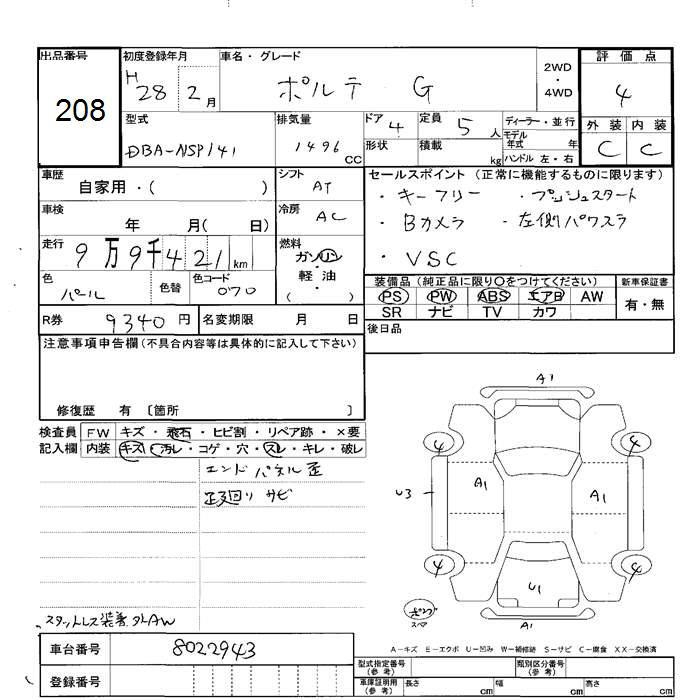 出品番号
208
初度登録年月
H 28 2月
車名・グレード
ポルテ G
2WD
・
4WD
評価点
4
外装 内装
C C
型式
DBA-NSP141
排気量
1496 CC
ドア 4
定員 5 人
形状
積載 kg
ディーラー・並行
モデル年式 年
ハンドル 左・右
車歴
自家用・( )
シフト
AT
車検
年 月( 日)
冷房
AC
走行
9万9千421 km
燃料
ガソリン
・
軽油
( )
色
パール
色替
色コード
070
セールスポイント (正常に機能するものに限ります)
・キーフリー ・プッシュスタート
・Bカメラ ・左側パワスラ
・VSC
装備品 (純正品に限り○をつけてください)
PS PW ABS エアB AW
SR ナビ TV カワ
新車保証書
有・無
R券 9340 円
名変期限 月 日
後日品
注意事項申告欄 (不具合内容等は具体的に記入して下さい)
修復歴 有 〔箇所 〕
検査員
記入欄
FW キズ・飛石・ヒビ割・リペア跡・×要
内装 キズ・汚レ・コゲ・穴・スレ・キレ・破レ
エンドパネル歪
下廻りサビ
スタットレス装着
A1
4 4
U3 A1 A1
4 4
U1
スペア
A1
A-キズ E-エクボ U-凹み W-補修跡 S-サビ C-腐食 XX-交換済
車台番号 8022943
登録番号
型式指定番号
(参考)
類別区分番号
(参考)
車庫証明用
(参考)
長さ cm 幅 cm 高さ cm